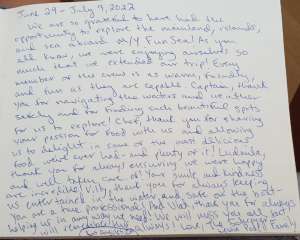 June 29 - July 9, 2022
We are so grateful to have had the
opportunity to explore the mainland, islands,
and sea aboard M/Y Fun Sea! As you
all know, we were enjoying ourselves so
much that we extended our trip! Every
member of the crew is as warm, friendly,
and fun as they are capable. Captain, thank
you for navigating the waters and weather
safely and for finding such beautiful spots
for us to explore! Chef, thank you for sharing
your passion for food with us and allowing
us to delight in some of the most delicious
food we've ever had - and plenty of it!
thank you for always ensuring we were happy
and well taken care of! Your smile and kindness
are incredible! thank you for always keeping
us entertained, in the water and safe on the
You are a true professional! And thank you for always
helping us in any way we need! We will miss you all, but
I will always have